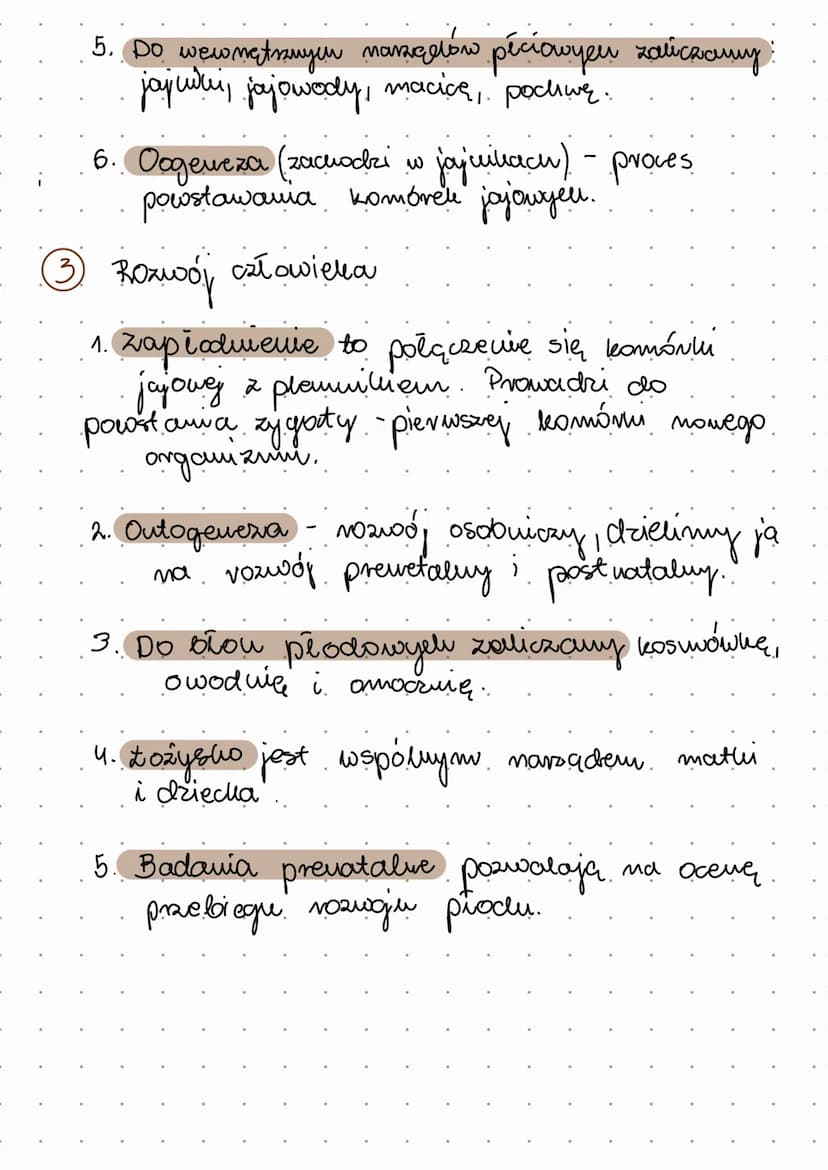 5. Do wewnętrznych narządów płciowych zaliczamy:
jajniki, jajowody, macicę, pochwę.
6. Oogeneza (zachodzi w jajnikach) - proces
powstawania komórek jajowych.
3 Rozwój człowieka
1. Zapłodnienie to połączenie się komórki
jajowej z plemnikiem. Prowadzi do
powstania zygoty - pierwszej komórki nowego
organizmu.
2. Ontogeneza - rozwój osobniczy, dzielimy ją
na rozwój prenetalny i postnatalny.
3. Do błon płodowych zaliczamy kosmówkę,
owodnię i omocznię.
4. Łożysko jest wspólnym narządem matki
i dziecka.
5. Badania prenatalne pozwalają na ocenę
przebiegu rozwoju płodu.